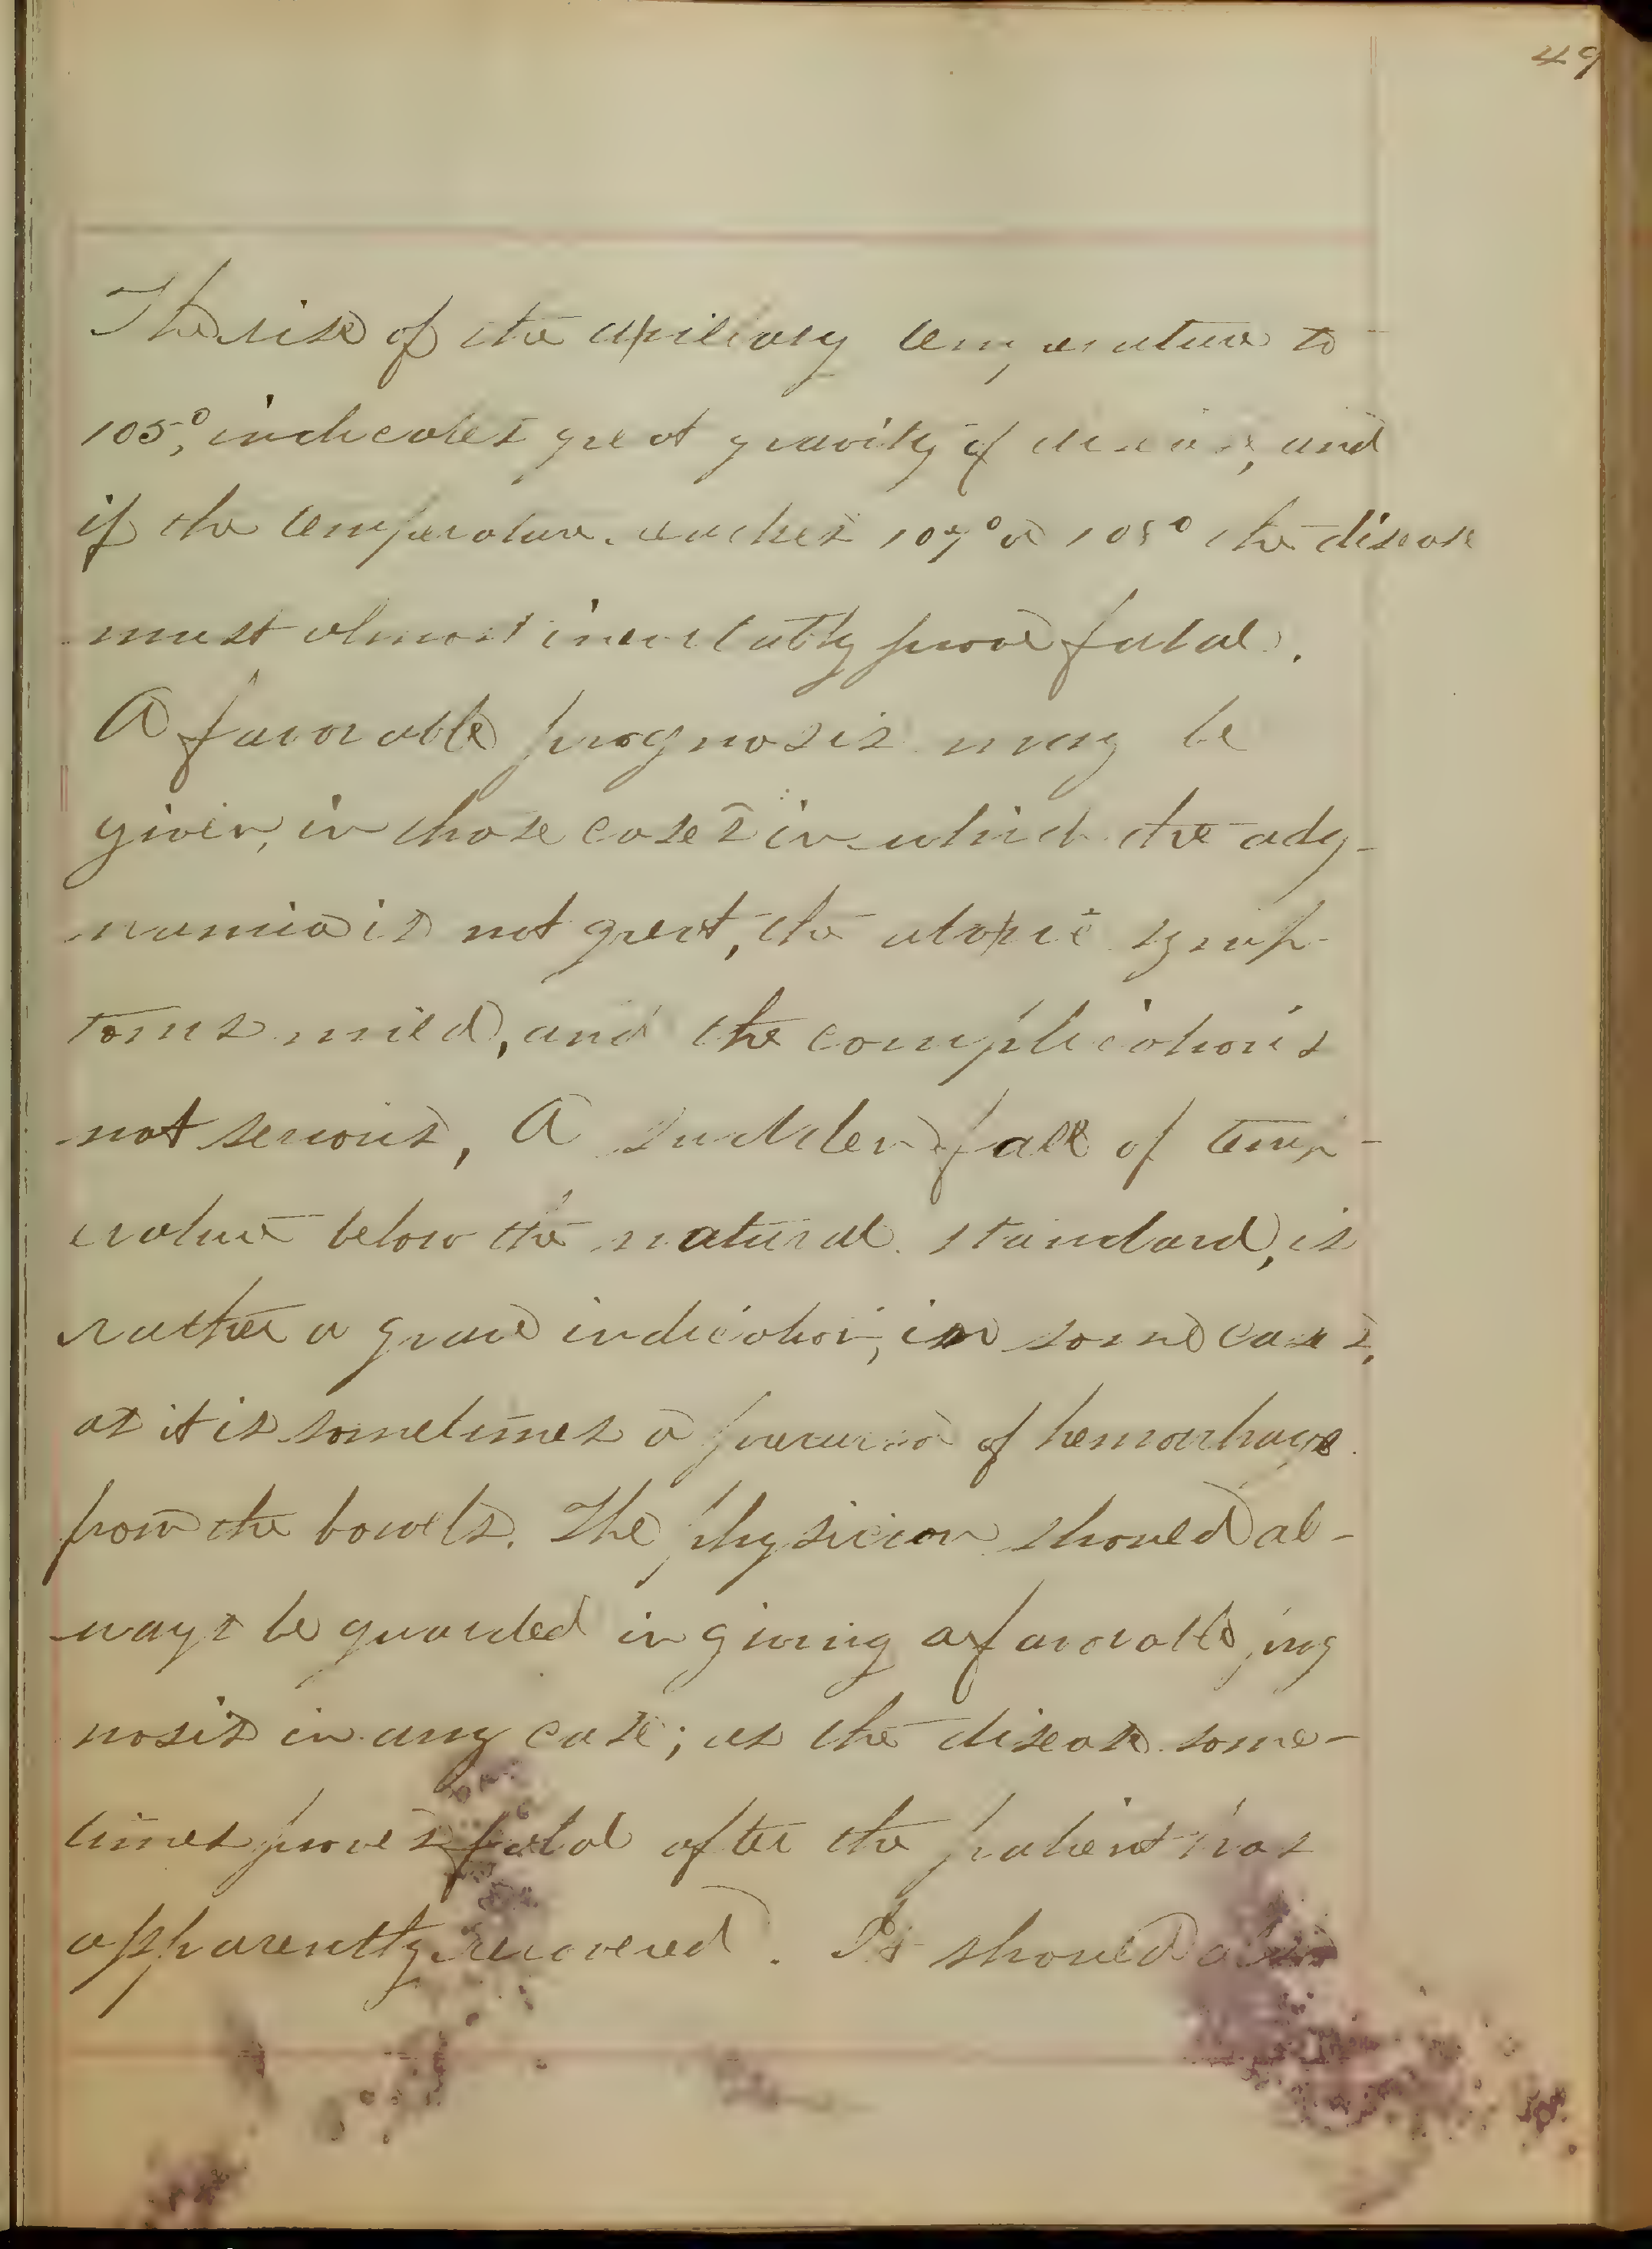 49
The rise of the axillary temperature to
105°, indicates great gravity of disease, and
if the temperature reaches 107° or 108° the disease
must almost inevitably prove fatal.
A favorable prognosis may be
given, in those cases in which the ady-
namia is not great, the ataxic symp-
toms mild, and the complications
not serious, A sudden fall of temp-
erature below the natural standard, is
rather a grave indication, in some cases,
as it is sometimes a precursor of hemorrhage
from the bowels. The physician should al-
ways be guarded in giving a favorable prog
nosis in any case; as the disease some-
times proves fatal after the patient has
apparently recovered. It should also